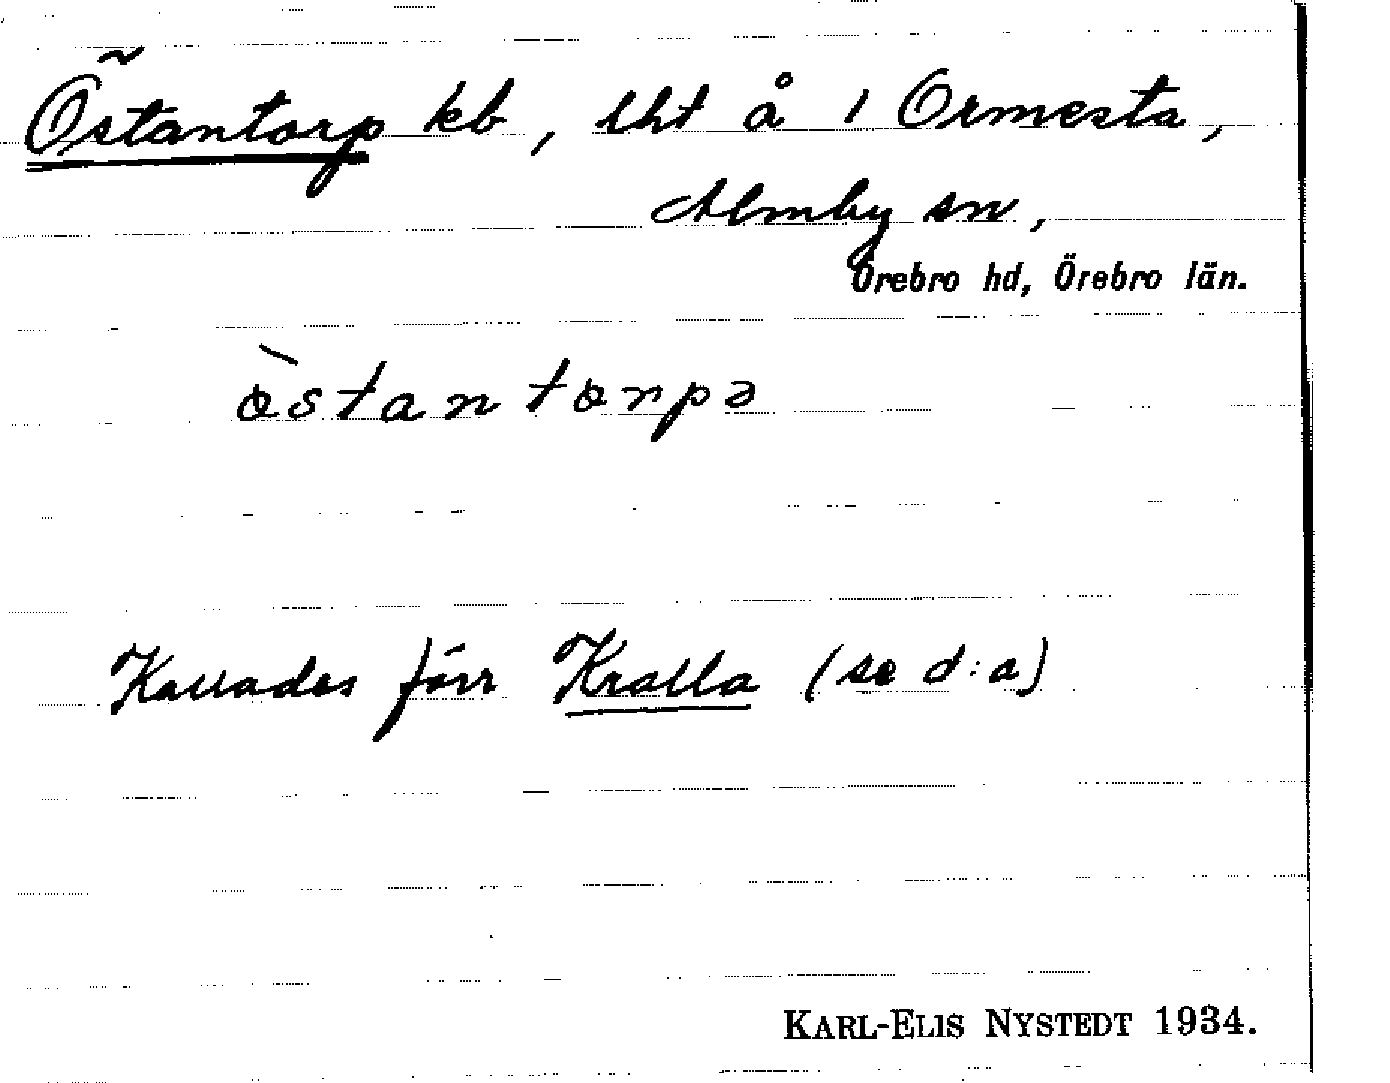 Östantorp kb, lht å 1 Ormesta,
Almby sn,
Örebro hd, Örebro län.
òstantorpə
Kallades förr Kralla (se d:a)
KARL-ELIS NYSTEDT 1934.